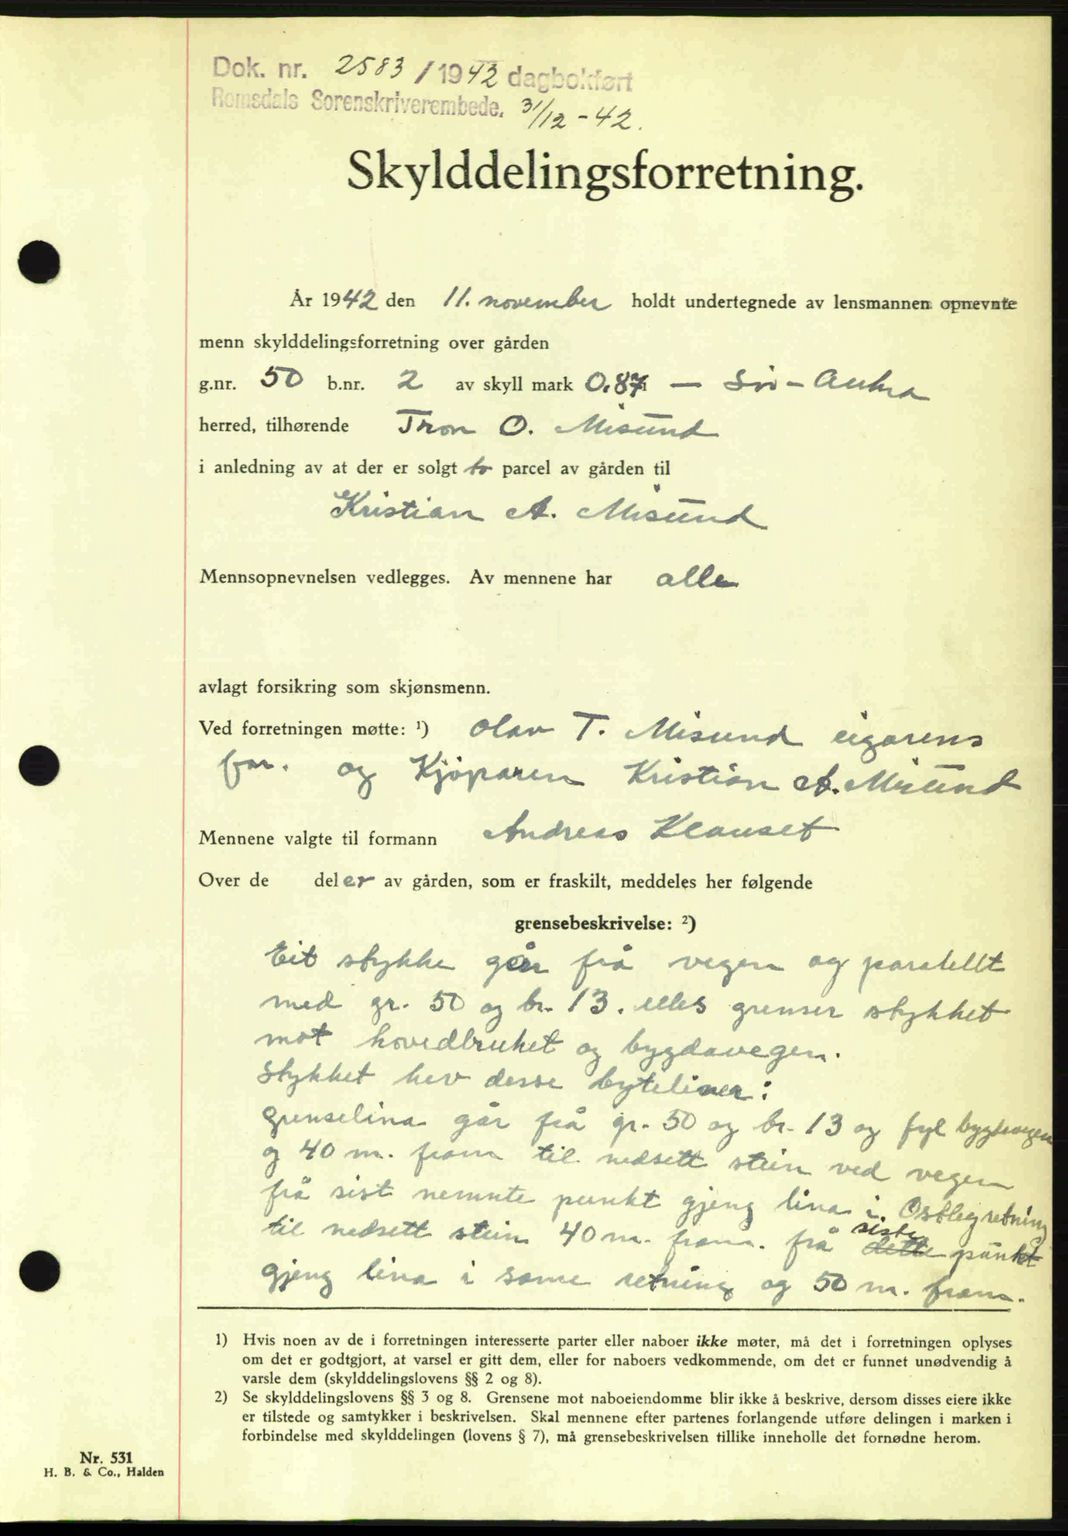 Dok. nr. 2583 / 1942 dagbokført
Romsdals Sorenskriverembede. 31/12 - 42.
Skylddelingsforretning.
År 1942 den 11. november holdt undertegnede av lensmannen opnevnte
menn skylddelingsforretning over gården
g.nr. 50 b.nr. 2 av skyll mark 0.87 — Sør-Aukra
herred, tilhørende Tron O. Misund
i anledning av at der er solgt to parcel av gården til
Kristian A. Misund
Mennsopnevnelsen vedlegges. Av mennene har alle
avlagt forsikring som skjønsmenn.
Ved forretningen møtte: ¹) Olav T. Misund eigarens
far. og Kjøparen Kristian A. Misund
Mennene valgte til formann Andreas Klauset
Over de deler av gården, som er fraskilt, meddeles her følgende
grensebeskrivelse: ²)
Eit stykke går frå vegen og paralellt
med gr. 50 og br. 13. elles grenser stykket
mot hovedbruket og bygdavegen.
Stykket hev desse byteliner:
Grenselina går frå gr. 50 og br. 13 og fyl bygdavegen
og 40 m. fram til nedsett stein ved vegen
frå sist nemnte punkt gjeng lina i Ostleg retning
til nedsett stein 40 m. fram. frå dette siste punkt
gjeng lina i same retning og 50 m. fram.
1) Hvis noen av de i forretningen interesserte parter eller naboer ikke møter, må det i forretningen oplyses
om det er godtgjort, at varsel er gitt dem, eller for naboers vedkommende, om det er funnet unødvendig å
varsle dem (skylddelingslovens §§ 2 og 8).
2) Se skylddelingslovens §§ 3 og 8. Grensene mot naboeiendomme blir ikke å beskrive, dersom disses eiere ikke
er tilstede og samtykker i beskrivelsen. Skal mennene efter partenes forlangende utføre delingen i marken i
forbindelse med skylddelingen (lovens § 7), må grensebeskrivelsen tillike inneholle det fornødne herom.
Nr. 531
H. B. & Co., Halden